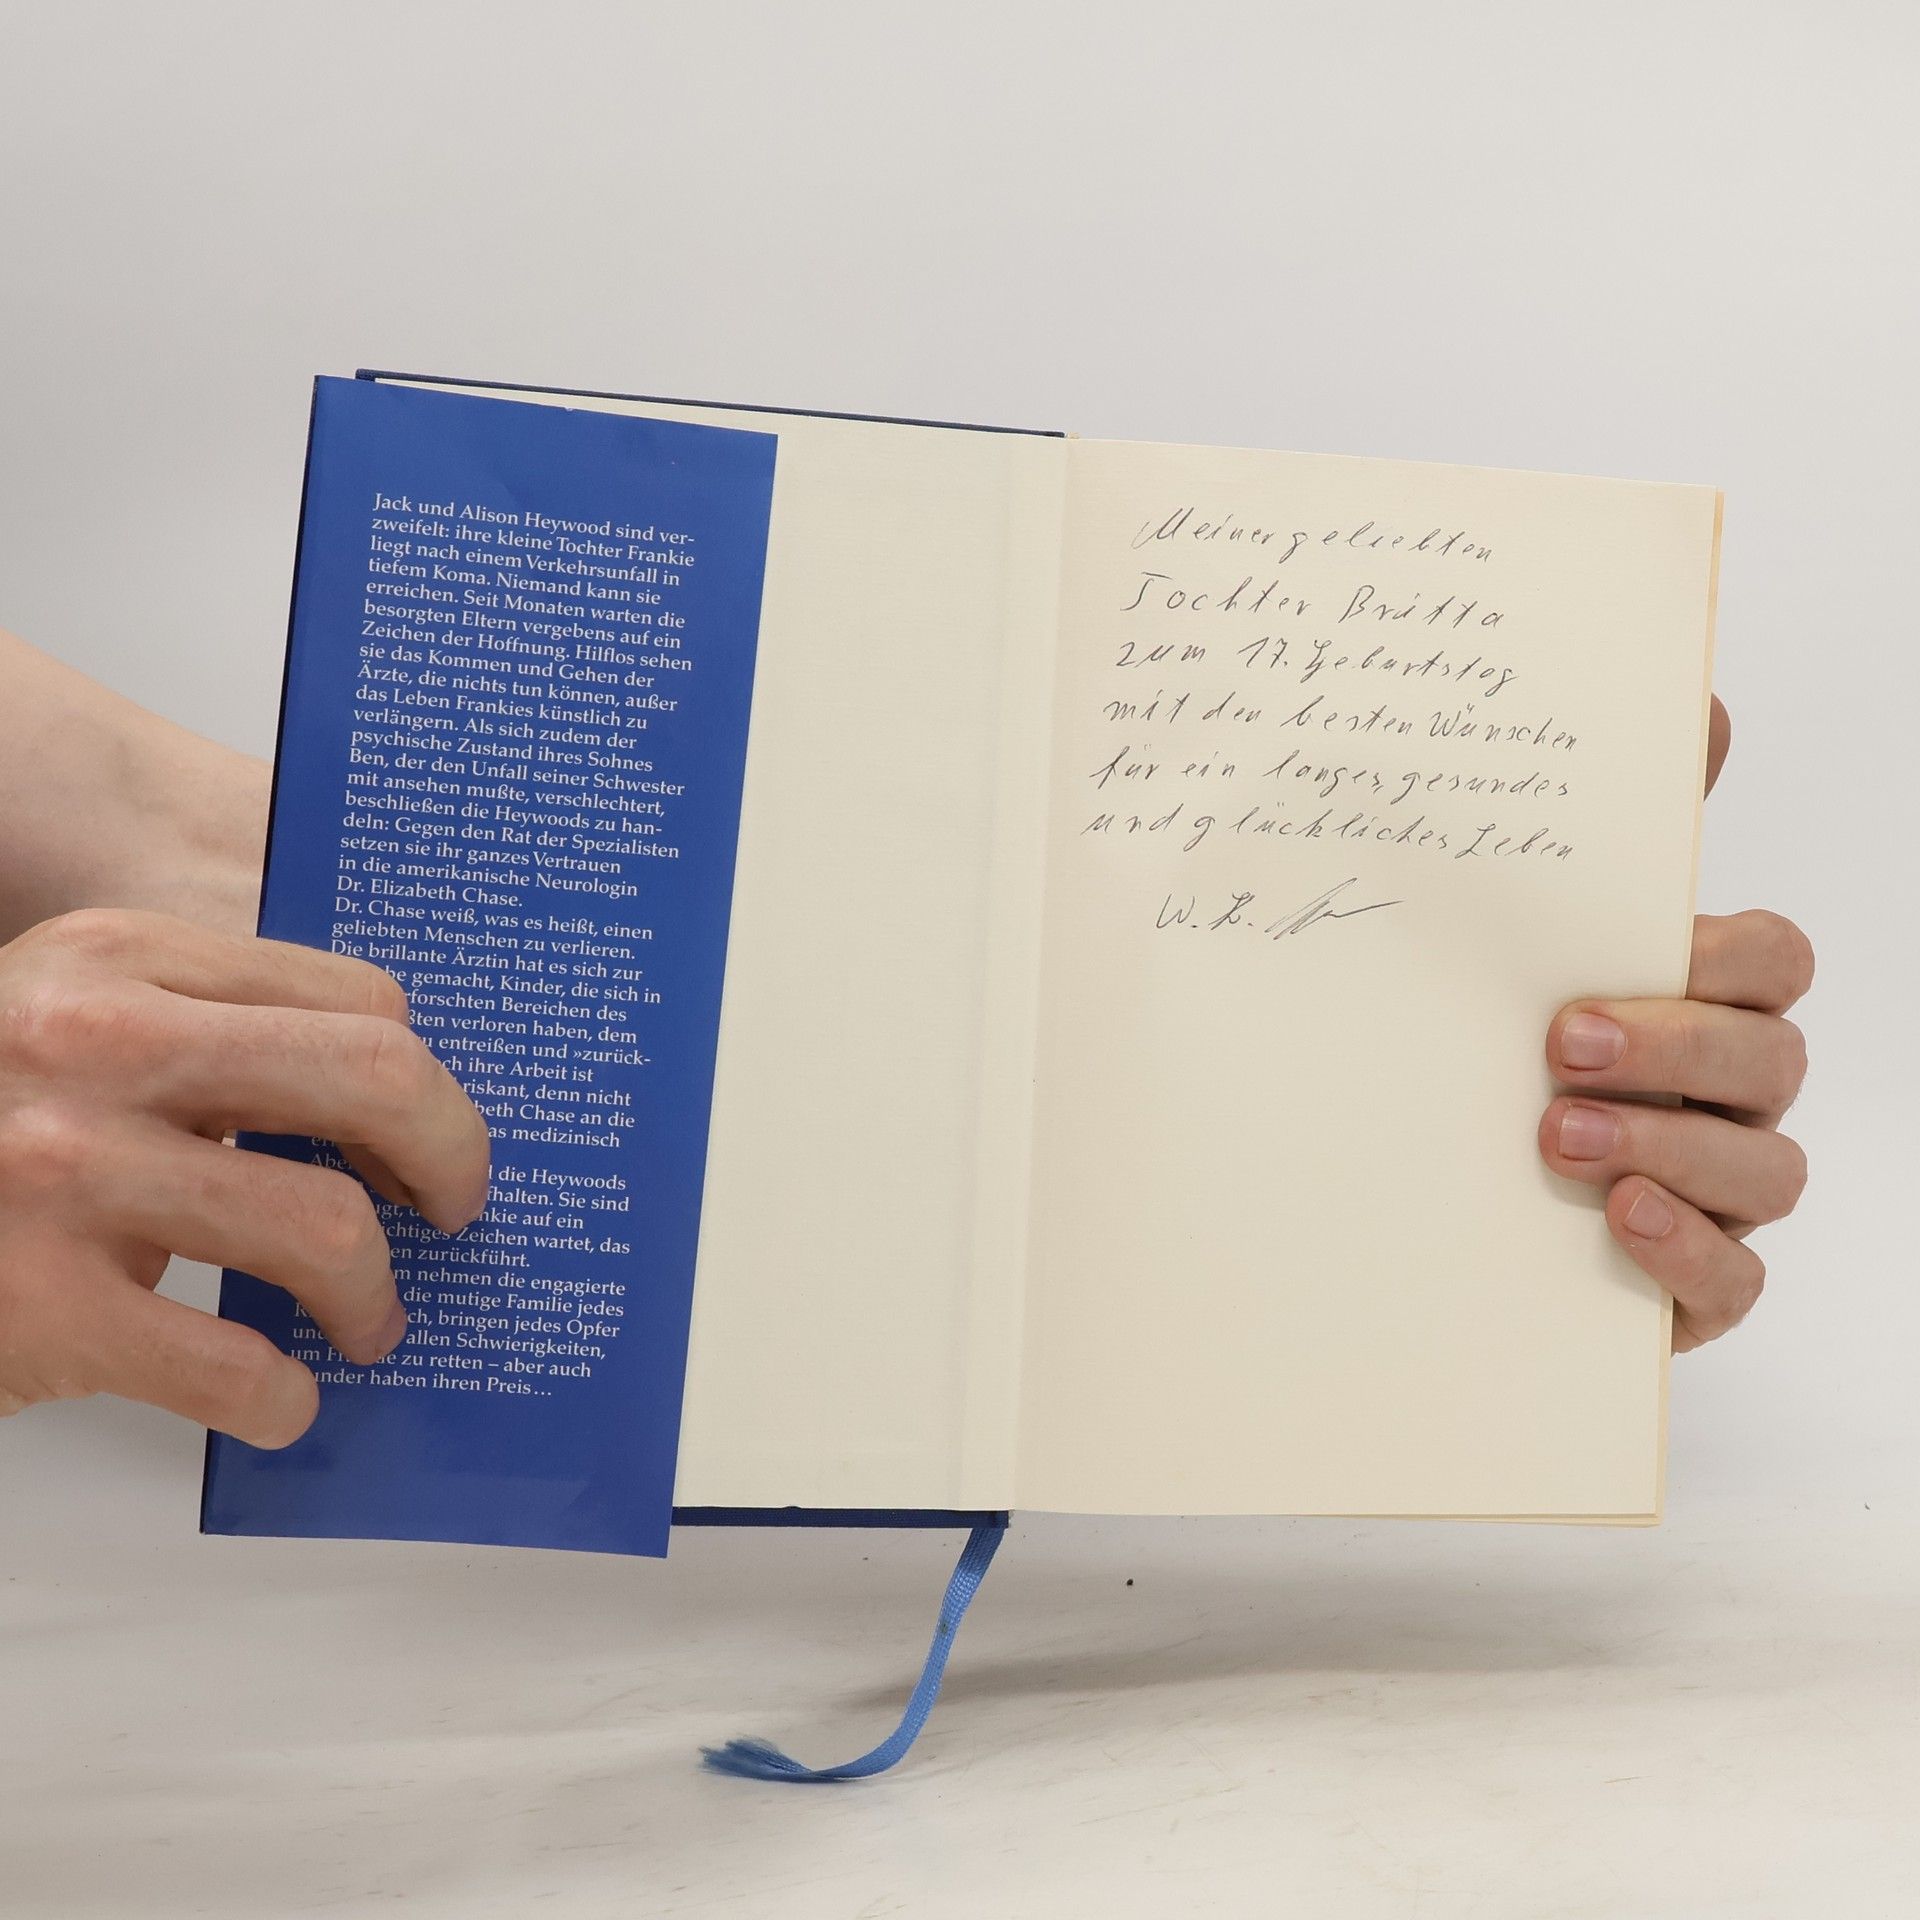 Jack und Alison Heywood sind ver-
zweifelt: ihre kleine Tochter Frankie
liegt nach einem Verkehrsunfall in
tiefem Koma. Niemand kann sie
erreichen. Seit Monaten warten die
besorgten Eltern vergebens auf ein
Zeichen der Hoffnung. Hilflos sehen
sie das Kommen und Gehen der
Ärzte, die nichts tun können, außer
das Leben Frankies künstlich zu
verlängern. Als sich zudem der
psychische Zustand ihres Sohnes
Ben, der den Unfall seiner Schwester
mit ansehen mußte, verschlechtert,
beschließen die Heywoods zu han-
deln: Gegen den Rat der Spezialisten
setzen sie ihr ganzes Vertrauen
in die amerikanische Neurologin
Dr. Elizabeth Chase.
Dr. Chase weiß, was es heißt, einen
geliebten Menschen zu verlieren.
Die brillante Ärztin hat es sich zur
gemacht, Kinder, die sich in
Bereichen des
verloren haben, dem
entreißen und »zurück-
ihre Arbeit ist
riskant, denn nicht
Chase an die
medizinisch
die Heywoods
Sie sind
auf ein
Zeichen wartet, das
zurückführt.
nehmen die engagierte
die mutige Familie jedes
bringen jedes Opfer
allen Schwierigkeiten,
um zu retten – aber auch
haben ihren Preis...
Meiner geliebten
Tochter Britta
zum 17. Geburtstag
mit den besten Wünschen
für ein langes, gesundes
und glückliches Leben
W. K.